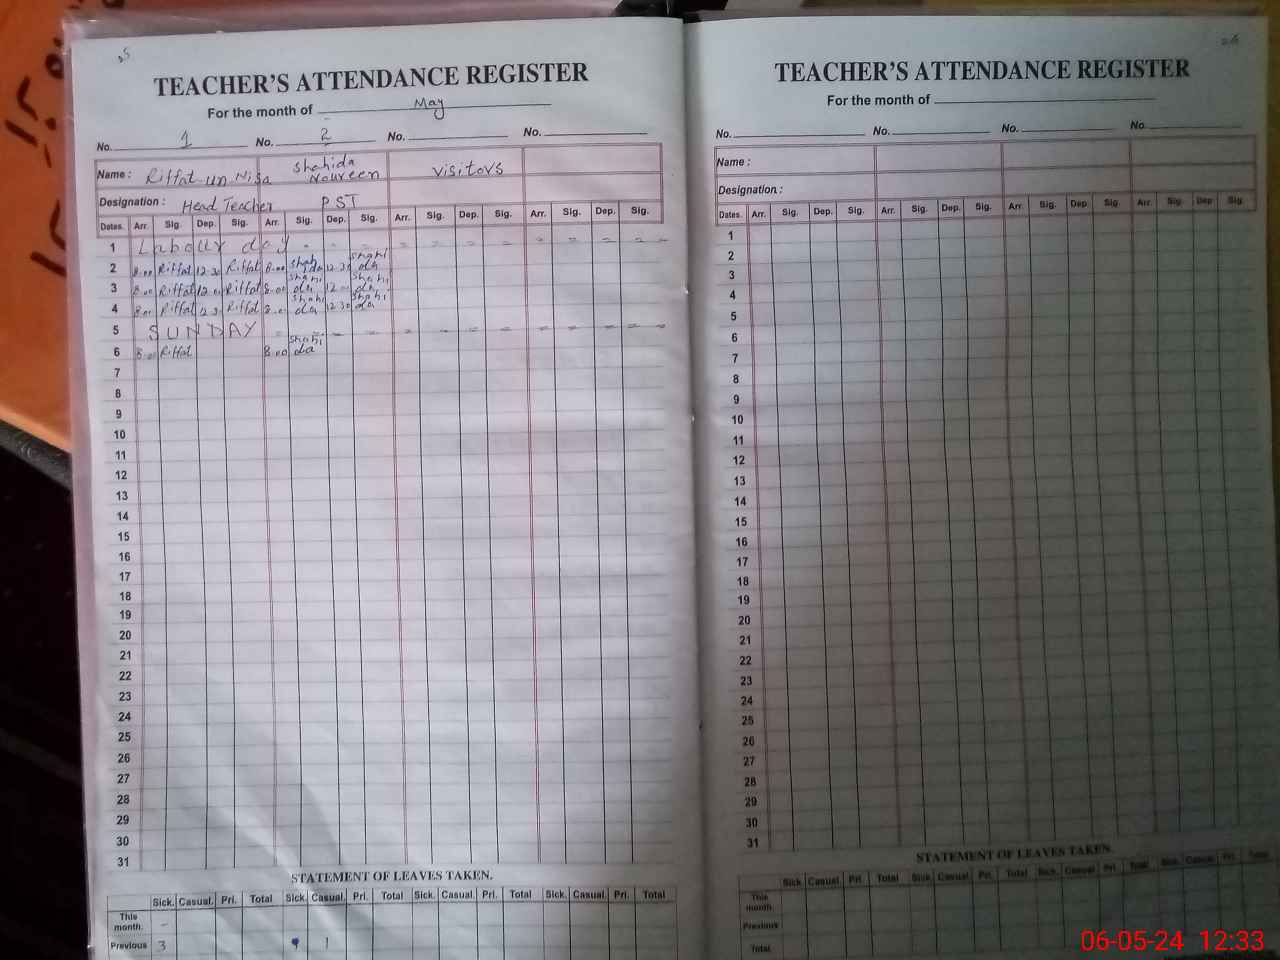 25
TEACHER'S ATTENDANCE REGISTER
For the month of May
No. 1 No. 2 No. No.
Name : Riffat un Nisa Shahida Noureen visitors
Designation : Head Teacher PST
Dates. Arr. Sig. Dep. Sig. Arr. Sig. Dep. Sig. Arr. Sig. Dep. Sig. Arr. Sig. Dep. Sig.
1 Labour day - - - - - - - - - - -
2 8.00 Riffat 12.30 Riffat 8.00 Shahida 12.30 Shahida
3 8.00 Riffat 12.00 Riffat 8.00 Shahida 12.00 Shahida
4 8.00 Riffat 12.30 Riffat 8.00 Shahida 12.30 Shahida
5 SUNDAY - - - - - - - - - - -
6 8.00 Riffat 8.00 Shahida
7
8
9
10
11
12
13
14
15
16
17
18
19
20
21
22
23
24
25
26
27
28
29
30
31
STATEMENT OF LEAVES TAKEN.
Sick. Casual. Pri. Total Sick. Casual. Pri. Total Sick. Casual. Pri. Total Sick. Casual. Pri. Total
This month. -
Previous 3 1
26
TEACHER'S ATTENDANCE REGISTER
For the month of
No. No. No. No.
Name :
Designation :
Dates. Arr. Sig. Dep. Sig. Arr. Sig. Dep. Sig. Arr. Sig. Dep. Sig. Arr. Sig. Dep. Sig.
1
2
3
4
5
6
7
8
9
10
11
12
13
14
15
16
17
18
19
20
21
22
23
24
25
26
27
28
29
30
31
STATEMENT OF LEAVES TAKEN.
Sick Casual Pri. Total Sick. Casual. Pri. Total Sick. Casual. Pri. Total Sick. Casual. Pri. Total
This month.
Previous
Total
06-05-24 12:33